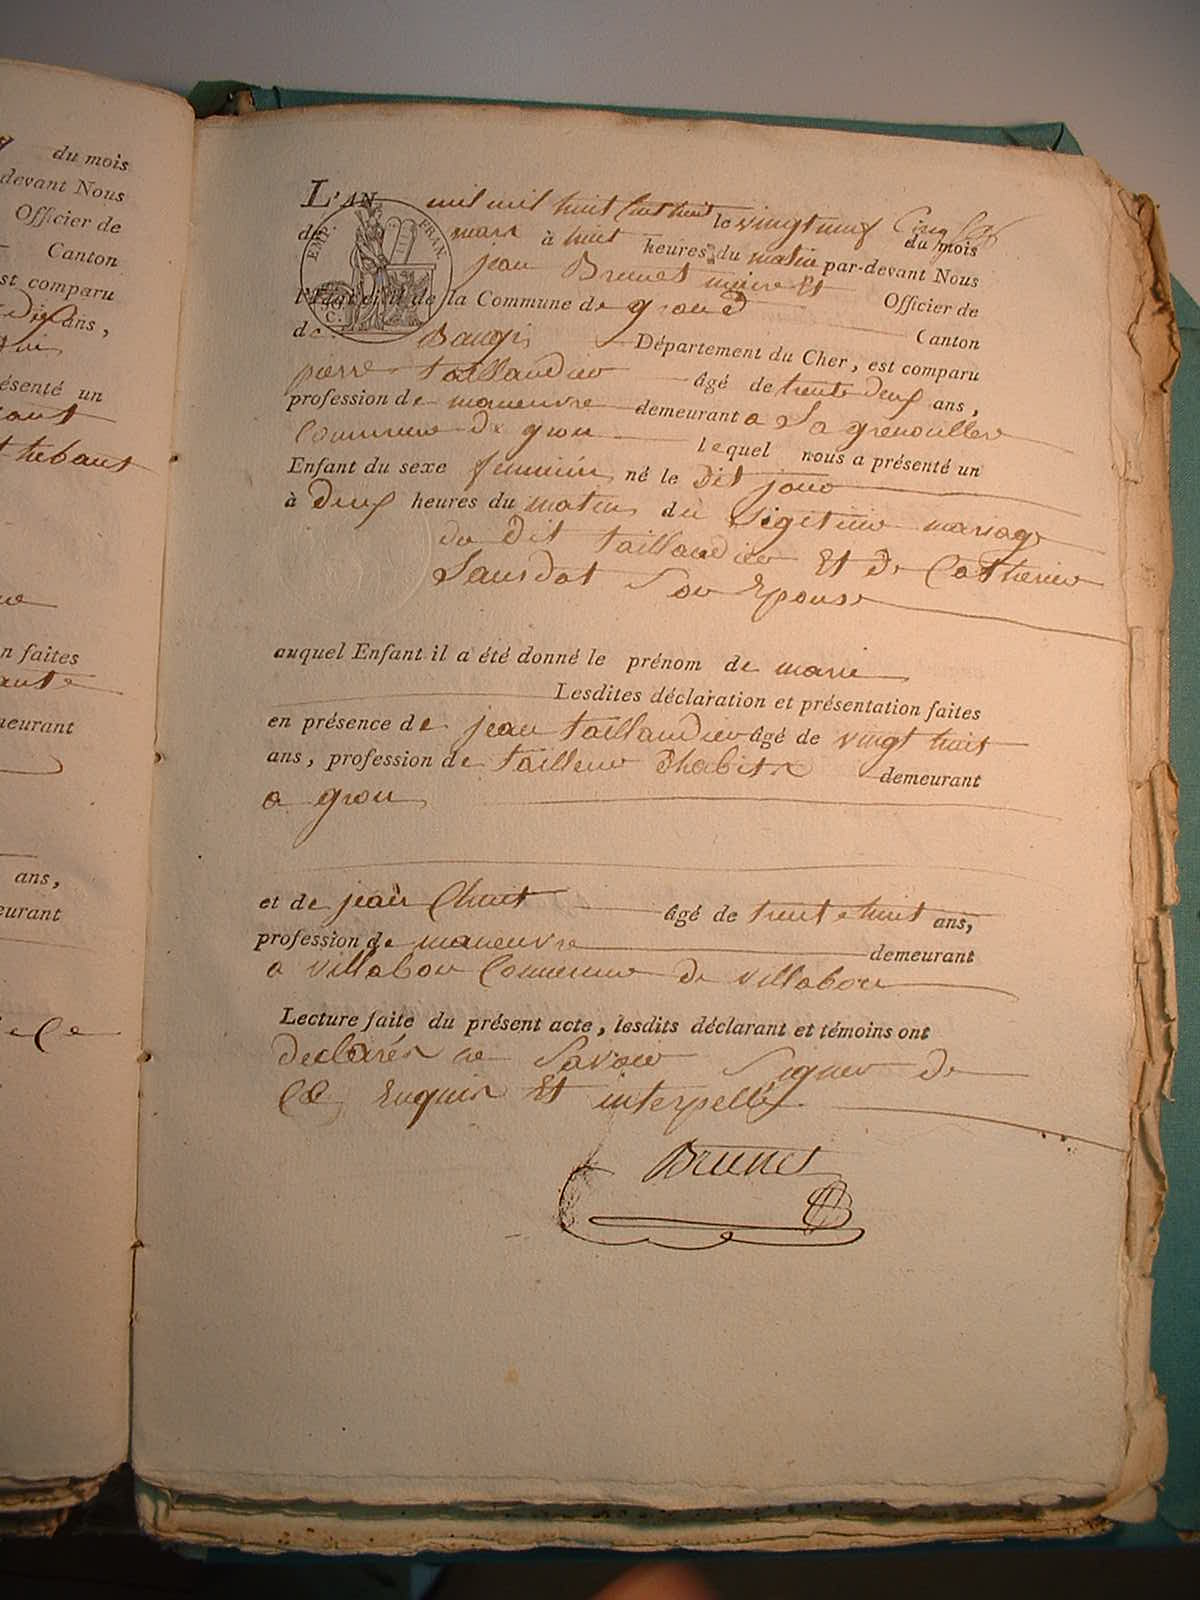 du mois
devant Nous
Officier de
Canton
est comparu
ans,
ésenté un
thebaut
n faites
meurant
ans,
eurant
L'AN mil mil huit Cent huit le vingt neuf
de mars à huit heures du matin du mois
par-devant Nous
jean Brunet maire Et Officier de
l'Etat civil de la Commune de grond
Canton
de Baugi Département du Cher, est comparu
pierre taillandier âgé de trente deux ans,
profession de maneuvre demeurant a La grenouillere
Commune de gron lequel nous a présenté un
Enfant du sexe feminin né le dit jour
à deux heures du matin du legitime mariage
du dit taillandier Et de Catherine
Sansdat Son Epouse
auquel Enfant il a été donné le prénom de marie
Lesdites déclaration et présentation faites
en présence de jean taillandier âgé de vingt huit
ans, profession de tailleur dhabits demeurant
a gron
et de jean Chuet âgé de trente huit ans,
profession de maneuvre demeurant
a villabon Commune de villabon
Lecture faite du présent acte, lesdits déclarant et témoins ont
declarés ne Savoir Signer de
Ce Enquis Et interpellé
Brunet
EMP. FRAN.
C.